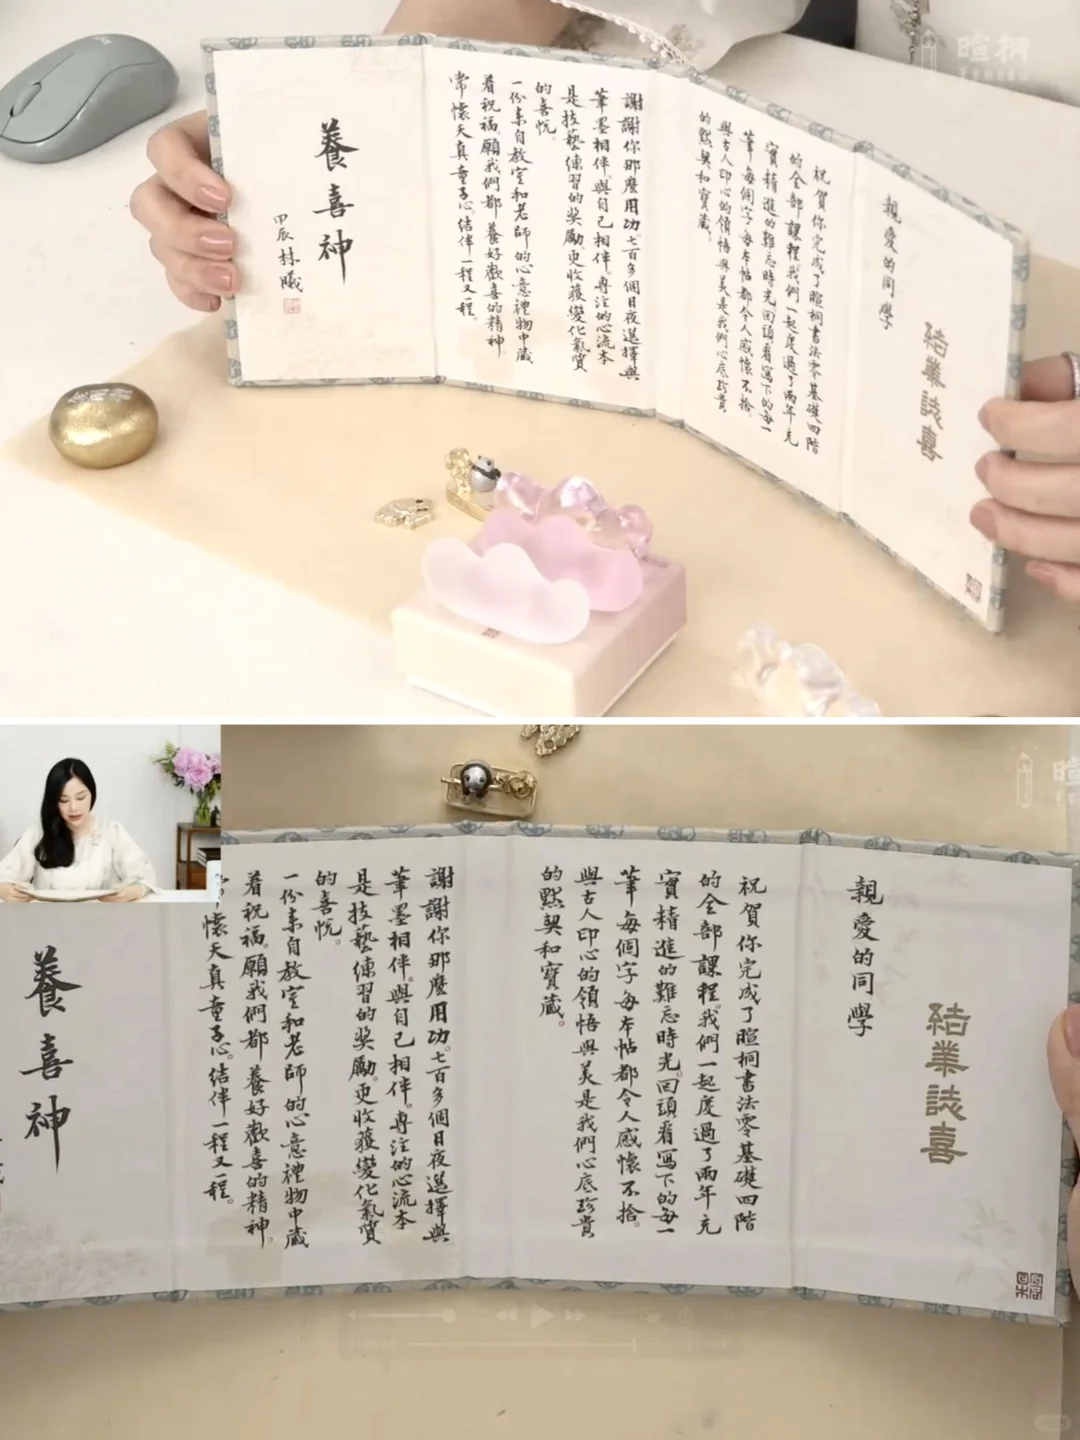 暄桐
結業誌喜
親愛的同學
祝賀你完成了暄桐書法零基礎四階
的全部課程。我們一起度過了兩年充
實精進的難忘時光。回頭看寫下的每一
筆每個字每本帖都令人感懷不捨。
與古人印心的領悟與美是我們心底珍貴
的默契和寶藏。
謝謝你那麼用功。七百多個日夜選擇與
筆墨相伴。與自己相伴。專注的心流本
是技藝練習的獎勵。更收穫變化氣質
的喜悅。
一份來自教室和老師的心意禮物中藏
着祝福。願我們都養好歡喜的精神。
常懷天真童子心。結伴一程又一程。
養喜神
甲辰 林曦
暄
結業誌喜
親愛的同學
祝賀你完成了暄桐書法零基礎四階
的全部課程。我們一起度過了兩年充
實精進的難忘時光。回頭看寫下的每一
筆每個字每本帖都令人感懷不捨。
與古人印心的領悟與美是我們心底珍貴
的默契和寶藏。
謝謝你那麼用功。七百多個日夜選擇與
筆墨相伴。與自己相伴。專注的心流本
是技藝練習的獎勵。更收穫變化氣質
的喜悅。
一份來自教室和老師的心意禮物中藏
着祝福。願我們都養好歡喜的精神。
常懷天真童子心。結伴一程又一程。
養喜神